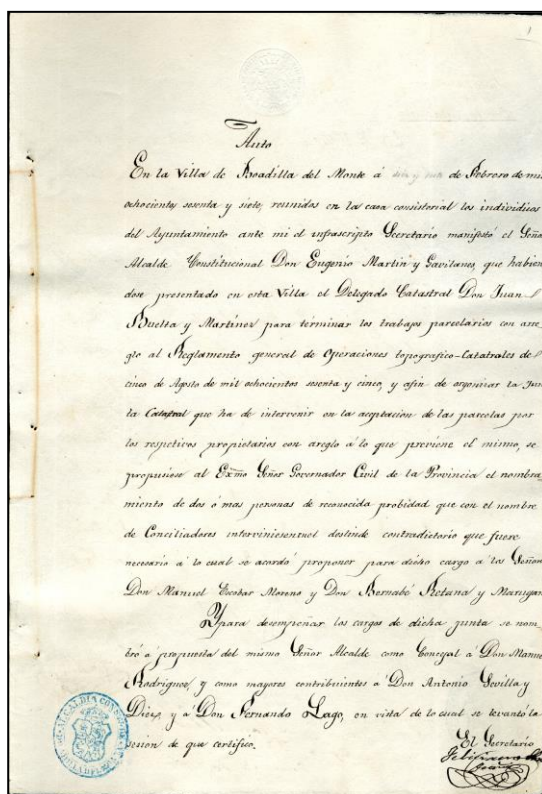 1
Auto
En la Villa de Boadilla del Monte á de Febrero de mil
ochocientos sesenta y siete, reunidos en la casa consistorial los individuos
del Ayuntamiento ante mi el infrascripto Secretario manifestó el Señor
Alcalde Constitucional Don Eugenio Martin y Gavilanes, que habien
dose presentado en esta Villa el Delegado Catastral Don Juan
Buelta y Martinez para términar los trabajos parcelários con arre
glo al Reglamento general de Operaciones topografico-Catatrales de
cinco de Agosto de mil ochocientos sesenta y cinco, y afin de argonizar la Jun
ta Catastral que ha de intervenir en la aceptacion de las parcelas por
los respetivos propietarios con areglo á lo que previene el mismo, se
propusiese al Exmo Señor Governador Civil de la Provincia el nombra
miento de dos ó mas personas de reconocida probidad que con el nombre
de Conciliadores interviniesen en el deslinde contradictorio que fuere
necesario á lo cual se acordó proponer para dicho cargo á los Señores
Don Manuel Escobar Moreno y Don Bernabé Retana y Marugan
Y para desempeñar los cargos de dicha junta se nom
bró a propuesta del mismo Señor Alcalde como Concejal á Don Manuel
Rodriguez y como mayores contribuientes á Don Antonio Sevilla y
Diez, y á Don Fernando Lago, en vista de lo cual se levantó la
sesion de que certifico.
El Secretario
ALCALDIA